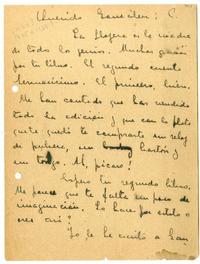 Querido González: C.
La pereza es la madre
de todos los genios. Muchas gracias
por tu libro. El segundo cuento
hermosísimo. El primero, bueno.
Me han contado que has vendido
toda la edición y que con la plata
que te quedó te compraste un reloj
de pulsera, un bastón y
un tongo. Ah, pícaro!
Espero tu segundo libro.
Me parece que te falta un poco de
imaginación. Lo haces por estilo o
eres así?
Yo le he escrito a